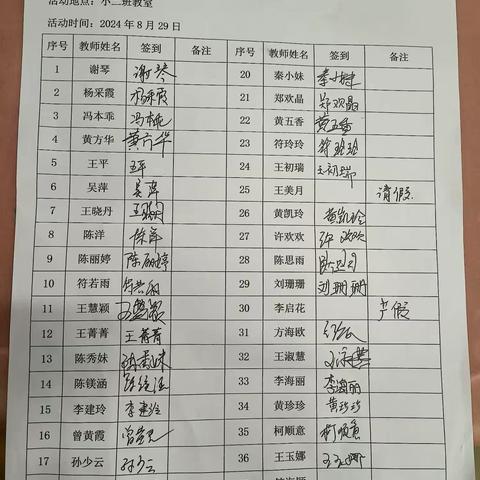 活动地点：小二班教室
活动时间：2024年8月29日
序号 教师姓名 签到 备注 序号 教师姓名 签到 备注
1 谢琴 谢琴 20 秦小妹 秦小妹
2 杨采霞 杨采霞 21 郑欢晶 郑欢晶
3 冯本乖 冯本乖 22 黄五香 黄五香
4 黄方华 黄方华 23 符玲玲 符玲玲
5 王平 王平 24 王初瑞 王初瑞
6 吴萍 吴萍 25 王美月 请假
7 王晓丹 26 黄凯玲 黄凯玲
8 陈洋 陈洋 27 许欢欢 许欢欢
9 陈丽婷 陈丽婷 28 陈思雨
10 符若雨 符若雨 29 刘珊珊 刘珊珊
11 王慧颖 王慧颖 30 李启花 产假
12 王菁菁 王菁菁 31 方海欧
13 陈秀妹 陈秀妹 32 王淑慧 王淑慧
14 陈镁涵 33 李海丽 李海丽
15 李建玲 李建玲 34 黄珍珍 黄珍珍
16 曾黄霞 35 柯顺意 柯顺意
17 孙少云 孙少云 36 王玉娜 王玉娜